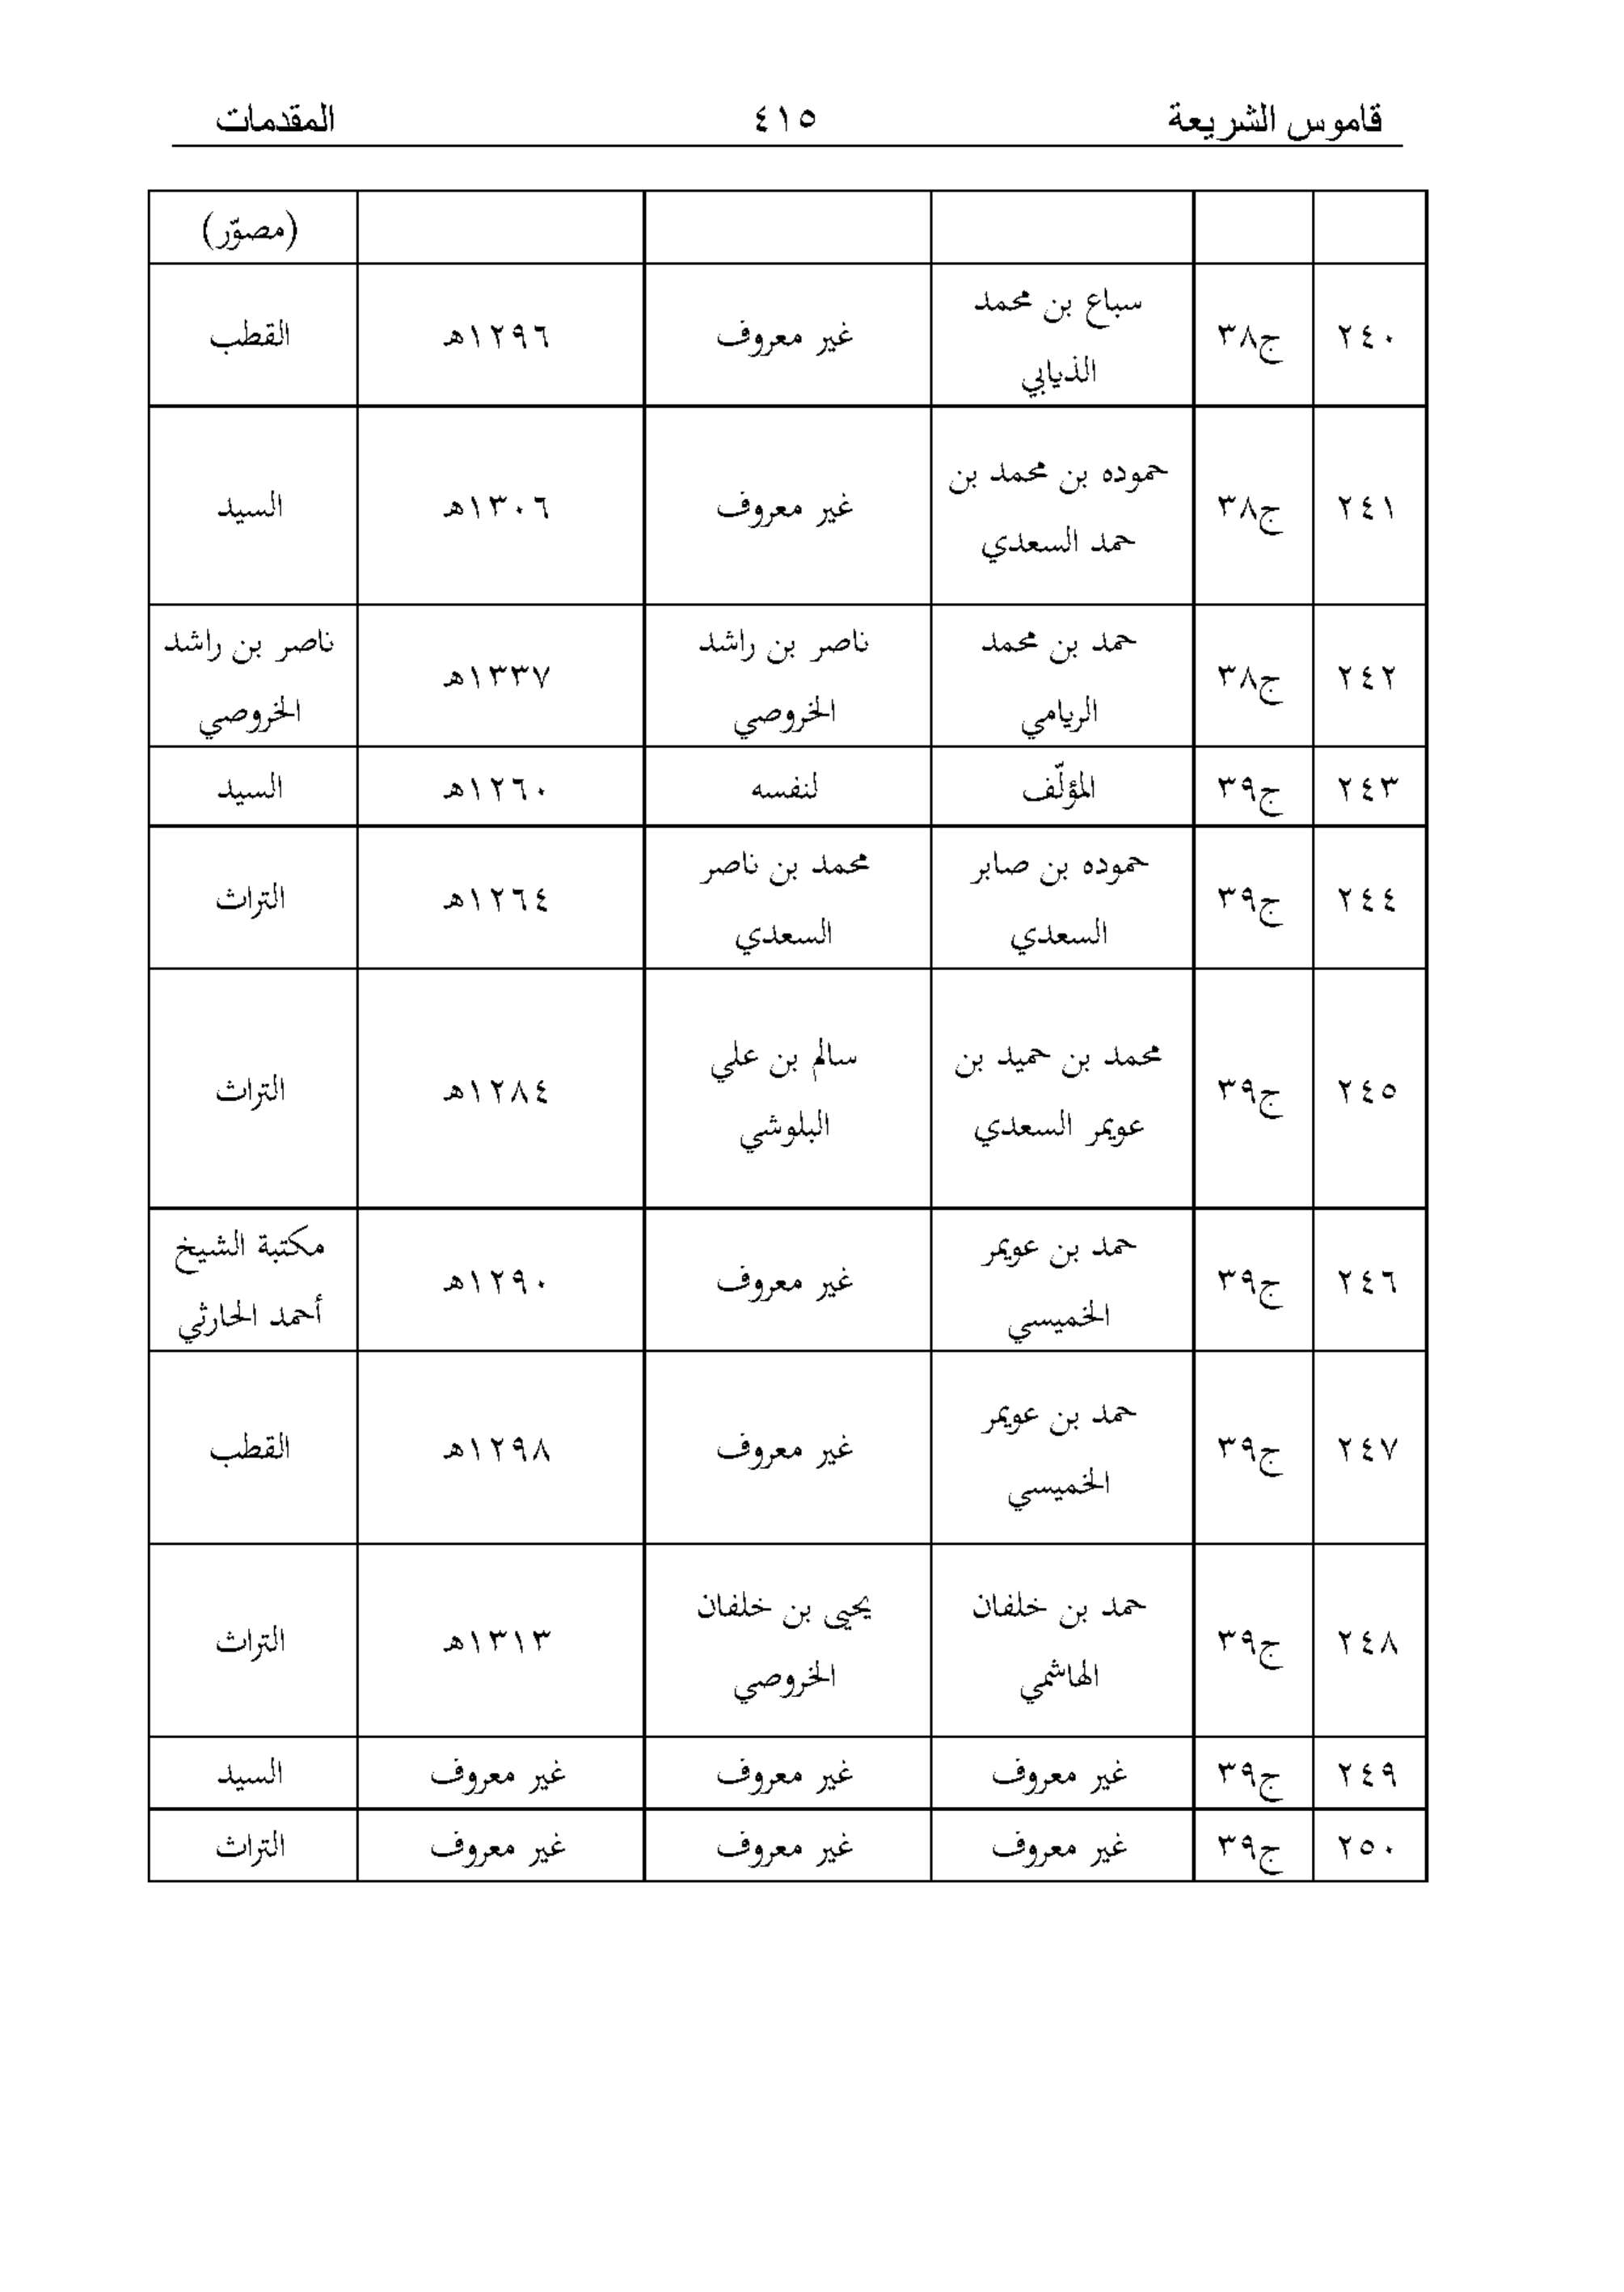 قاموس الشريعة ٤١٥ المقدمات
(مصوّر)
٢٤٠ ج٣٨ سباع بن محمد الذيابي غير معروف ١٢٩٦هـ القطب
٢٤١ ج٣٨ حموده بن محمد بن حمد السعدي غير معروف ١٣٠٦هـ السيد
٢٤٢ ج٣٨ حمد بن محمد الريامي ناصر بن راشد الخروصي ١٣٣٧هـ ناصر بن راشد الخروصي
٢٤٣ ج٣٩ المؤلّف لنفسه ١٢٦٠هـ السيد
٢٤٤ ج٣٩ حموده بن صابر السعدي محمد بن ناصر السعدي ١٢٦٤هـ التراث
٢٤٥ ج٣٩ محمد بن حميد بن عويمر السعدي سالم بن علي البلوشي ١٢٨٤هـ التراث
٢٤٦ ج٣٩ حمد بن عويمر الخميسي غير معروف ١٢٩٠هـ مكتبة الشيخ أحمد الحارثي
٢٤٧ ج٣٩ حمد بن عويمر الخميسي غير معروف ١٢٩٨هـ القطب
٢٤٨ ج٣٩ حمد بن خلفان الهاشمي يحيى بن خلفان الخروصي ١٣١٣هـ التراث
٢٤٩ ج٣٩ غير معروف غير معروف غير معروف السيد
٢٥٠ ج٣٩ غير معروف غير معروف غير معروف التراث